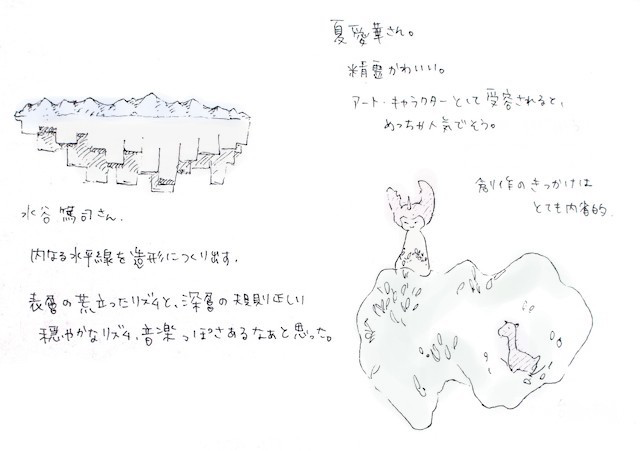 水谷篤司さん.
内なる水平線を造形につくり出す.
表層の荒立ったリズムと、深層の規則正しい
穏やかなリズム、音楽っぽさあるなぁと思った。
夏愛華さん。
精霊かわいい。
アート・キャラクターとして受容されると、
めっちゃ人気でそう。
創作のきっかけは
とても内省的.